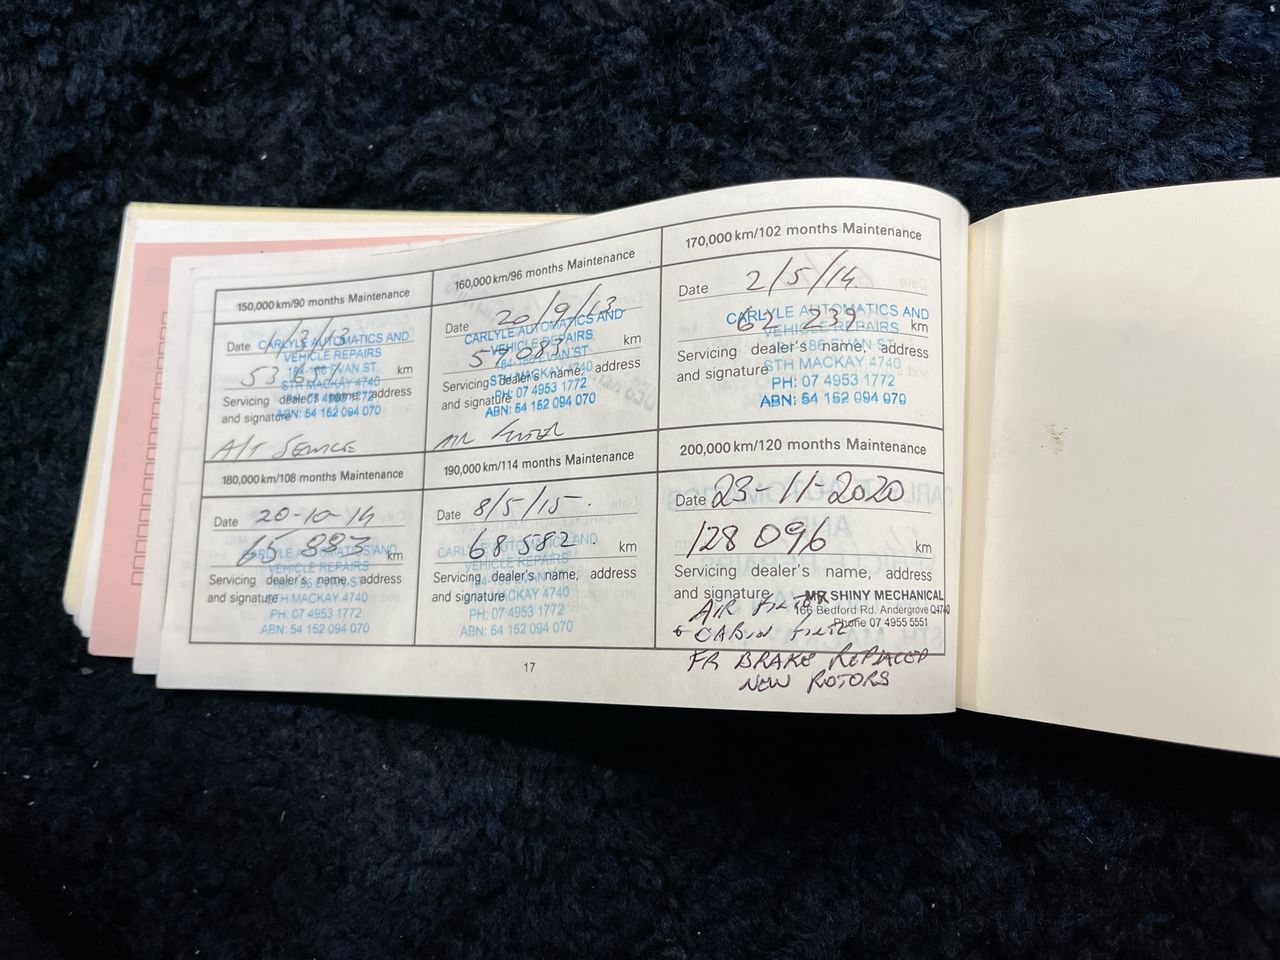 150,000 km/90 months Maintenance
Date 1/3/13
CARLYLE AUTOMATICS AND
VEHICLE REPAIRS
184-186 EVAN ST
km
STH MACKAY 4740
Servicing dealer's name, address
and signature
ABN: 54 152 094 070
A/T SERVICE
160,000 km/96 months Maintenance
Date 20/9/13
CARLYLE AUTOMATICS AND
VEHICLE REPAIRS
57083 km
184-186 EVAN ST
STH MACKAY 4740
Servicing dealer's name, address
and signature
PH: 07 4953 1772
ABN: 54 152 094 070
AIR FILTER
170,000 km/102 months Maintenance
Date 2/5/14
CARLYLE AUTOMATICS AND
62 239 km
VEHICLE REPAIRS
186 EVAN ST
Servicing dealer's name, address
and signature
STH MACKAY 4740
PH: 07 4953 1772
ABN: 54 152 094 070
180,000 km/108 months Maintenance
Date 20-10-14
65 883 km
CARLYLE AUTOMATICS AND
VEHICLE REPAIRS
Servicing dealer's name, address
and signature
STH MACKAY 4740
PH: 07 4953 1772
ABN: 54 152 094 070
190,000 km/114 months Maintenance
Date 8/5/15
68 582 km
CARLYLE AUTOMATICS AND
VEHICLE REPAIRS
184-186 EVAN ST
Servicing dealer's name, address
and signature
MACKAY 4740
PH: 07 4953 1772
ABN: 54 152 094 070
200,000 km/120 months Maintenance
Date 23-11-2020
128 096 km
Servicing dealer's name, address
and signature
MR SHINY MECHANICAL
166 Bedford Rd. Andergrove Q4740
Phone 07 4955 5551
AIR FILTER
+ CABIN FILTER
FR BRAKE REPLACED
NEW ROTORS
17